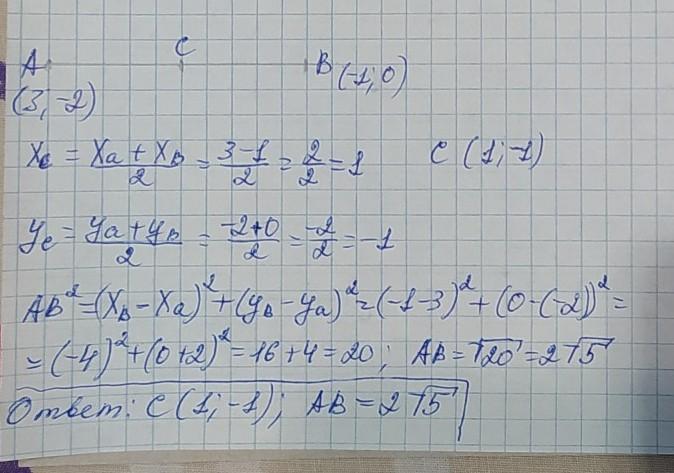 C
A B (-1; 0)
(3; -2)
Xc = Xa + XB / 2 = 3-1 / 2 = 2 / 2 = 1 C (1; -1)
yc = ya + yB / 2 = -2+0 / 2 = -2 / 2 = -1
AB² = (XB - Xa)² + (yB - ya)² = (-1-3)² + (0-(-2))² =
= (-4)² + (0+2)² = 16 + 4 = 20; AB = √20 = 2√5
Ответ: C (1; -1); AB = 2√5